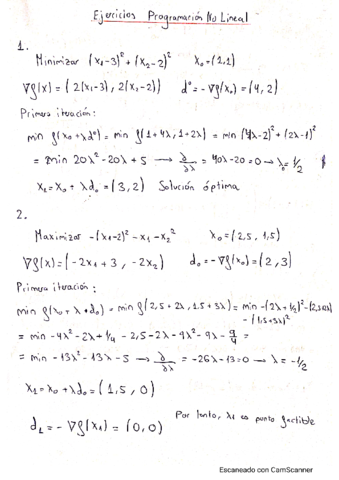 Ejercicios Programación No Lineal
1.
Minimizar (x₁-3)² + (x₂-2)²   x₀=(1,1)
∇f(x) = (2(x₁-3), 2(x₂-2))   d⁰ = -∇f(x₀) = (4,2)
Primera iteración:
min f(x₀+λd⁰) = min f(1+4λ, 1+2λ) = min (4λ-2)² + (2λ-1)²
= min 20λ²-20λ+5 → ∂/∂λ = 40λ-20=0 → λ₀=1/2
x₁ = x₀ + λd₀ = (3,2) Solución óptima
2.
Maximizar -(x₁-2)² - x₁ - x₂²   x₀ = (2,5, 1,5)
∇f(x) = (-2x₁+3, -2x₂)   d₀ = -∇f(x₀) = (2,3)
Primera iteración:
min f(x₀+λ·d₀) = min f(2,5+2λ, 1.5+3λ) = min -(2λ+1/2)² -(2,5+2λ)
-(1,5+3λ)²
= min -4λ²-2λ+1/4 - 2,5-2λ-9λ²-9λ-9/4 =
= min -13λ²-13λ-5 → ∂/∂λ = -26λ-13=0 → λ=-1/2
x₁ = x₀ + λd₀ = (1,5, 0)
d₁ = -∇f(x₁) = (0,0)   Por tanto, x₁ es punto factible
Escaneado con CamScanner